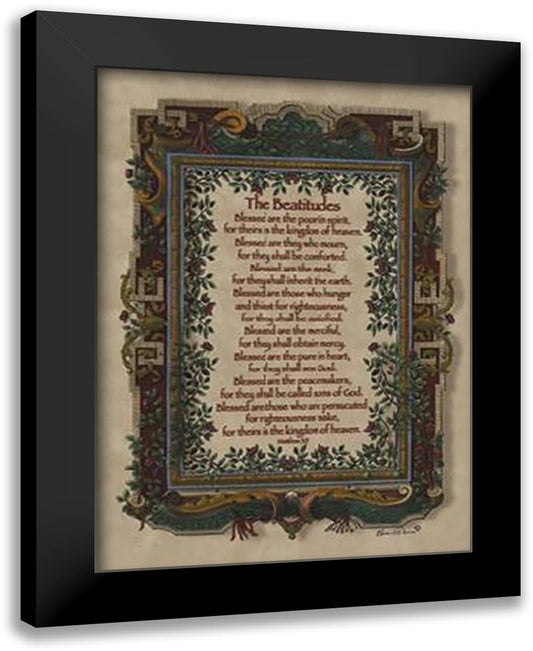 The Beatitudes
Blessed are the poor in spirit,
for theirs is the kingdom of heaven.
Blessed are they who mourn,
for they shall be comforted.
Blessed are the meek,
for they shall inherit the earth.
Blessed are those who hunger
and thirst for righteousness,
for they shall be satisfied.
Blessed are the merciful,
for they shall obtain mercy.
Blessed are the pure in heart,
for they shall see God.
Blessed are the peacemakers,
for they shall be called sons of God.
Blessed are those who are persecuted
for righteousness sake,
for theirs is the kingdom of heaven.
Matthew